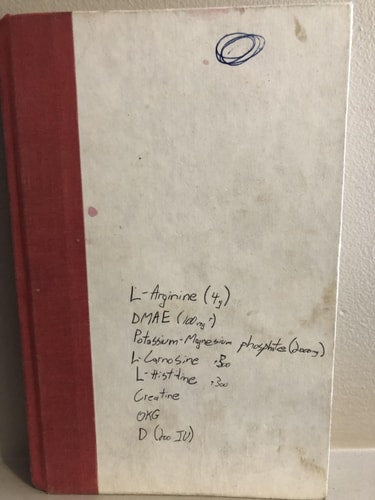 L-Arginine (4g)
DMAE (100mg)
Potassium-Magnesium phosphate (2000g)
L-Carnosine .300
L-Histidine .300
Creatine
OKG
D (200 IU)